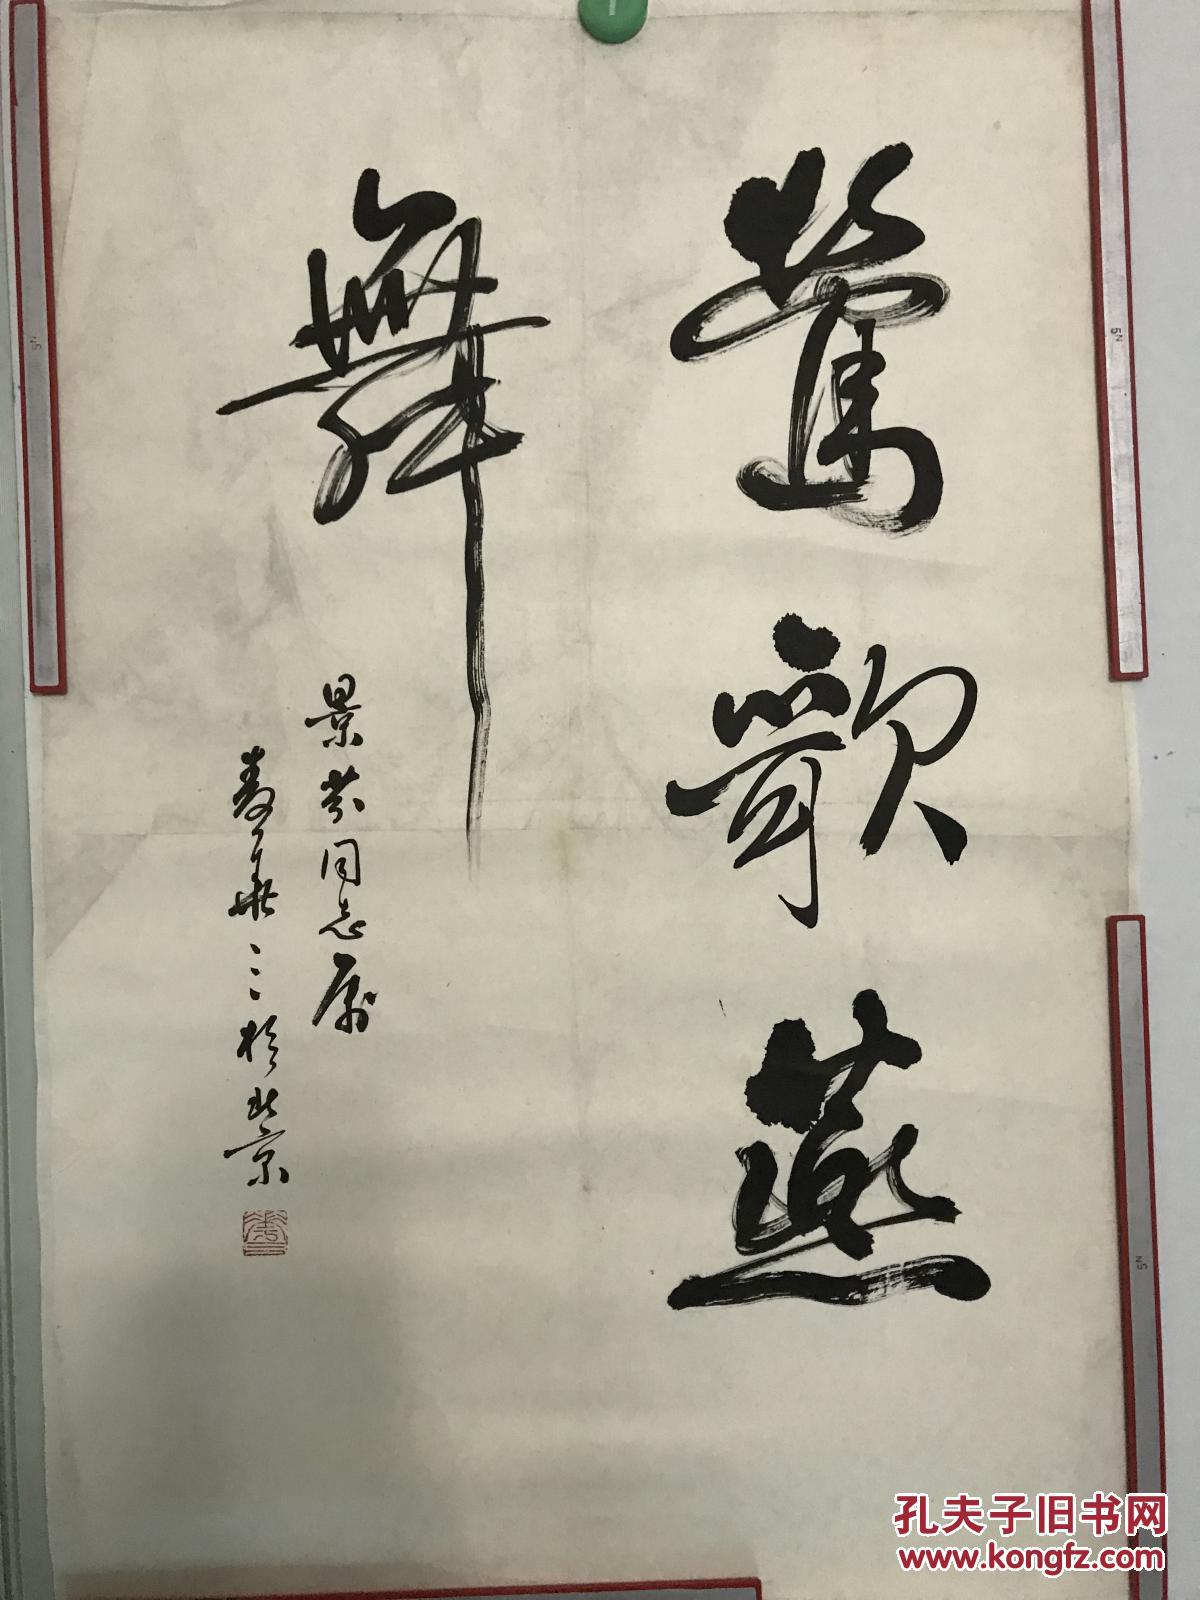 鶯歌燕
舞
景芬同志属
於北京
孔夫子旧书网
www.kongfz.com